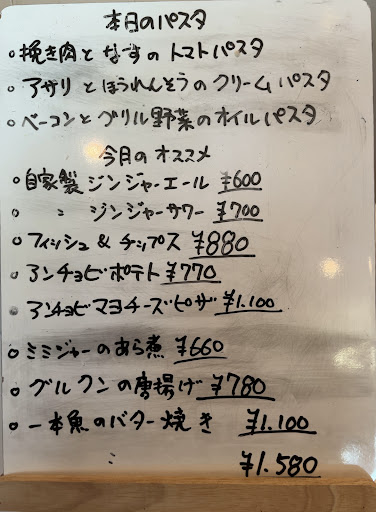 本日のパスタ
○挽き肉となすのトマトパスタ
○アサリとほうれんそうのクリームパスタ
○ベーコンとグリル野菜のオイルパスタ
今月のオススメ
○自家製ジンジャーエール ¥600
○ 〃 ジンジャーサワー ¥700
○フィッシュ&チップス ¥880
○アンチョビポテト ¥770
○アンチョビマヨチーズピザ ¥1.100
○ミミジャーのあら煮 ¥660
○グルクンの唐揚げ ¥780
○一本魚のバター焼き ¥1.100
: ¥1.580